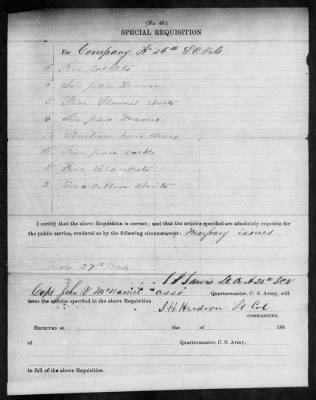 (No. 40.)
SPECIAL REQUISITION
For Company A 26th S C Vols
5 Five Jackets
6 Six pair Drawers
5 Five Flannel shirts
6 Six pair Drawers
pair shoes
pair socks
5 Five Blankets
2 Two cotton shirts
I certify that the above Requisition is correct; and that the articles specified are absolutely requisite for
the public service, rendered so by the following circumstances:
Nov 27th 1864
Lt Co A 26th SCV
Capt John V McNamee asst Quartermaster, C. S. Army, will
issue the articles specified in the above Requisition.
J H Hudson Lt Col
COMMANDING.
RECEIVED at the of 186
of Quartermaster, C. S. Army,
in full of the above Requisition.